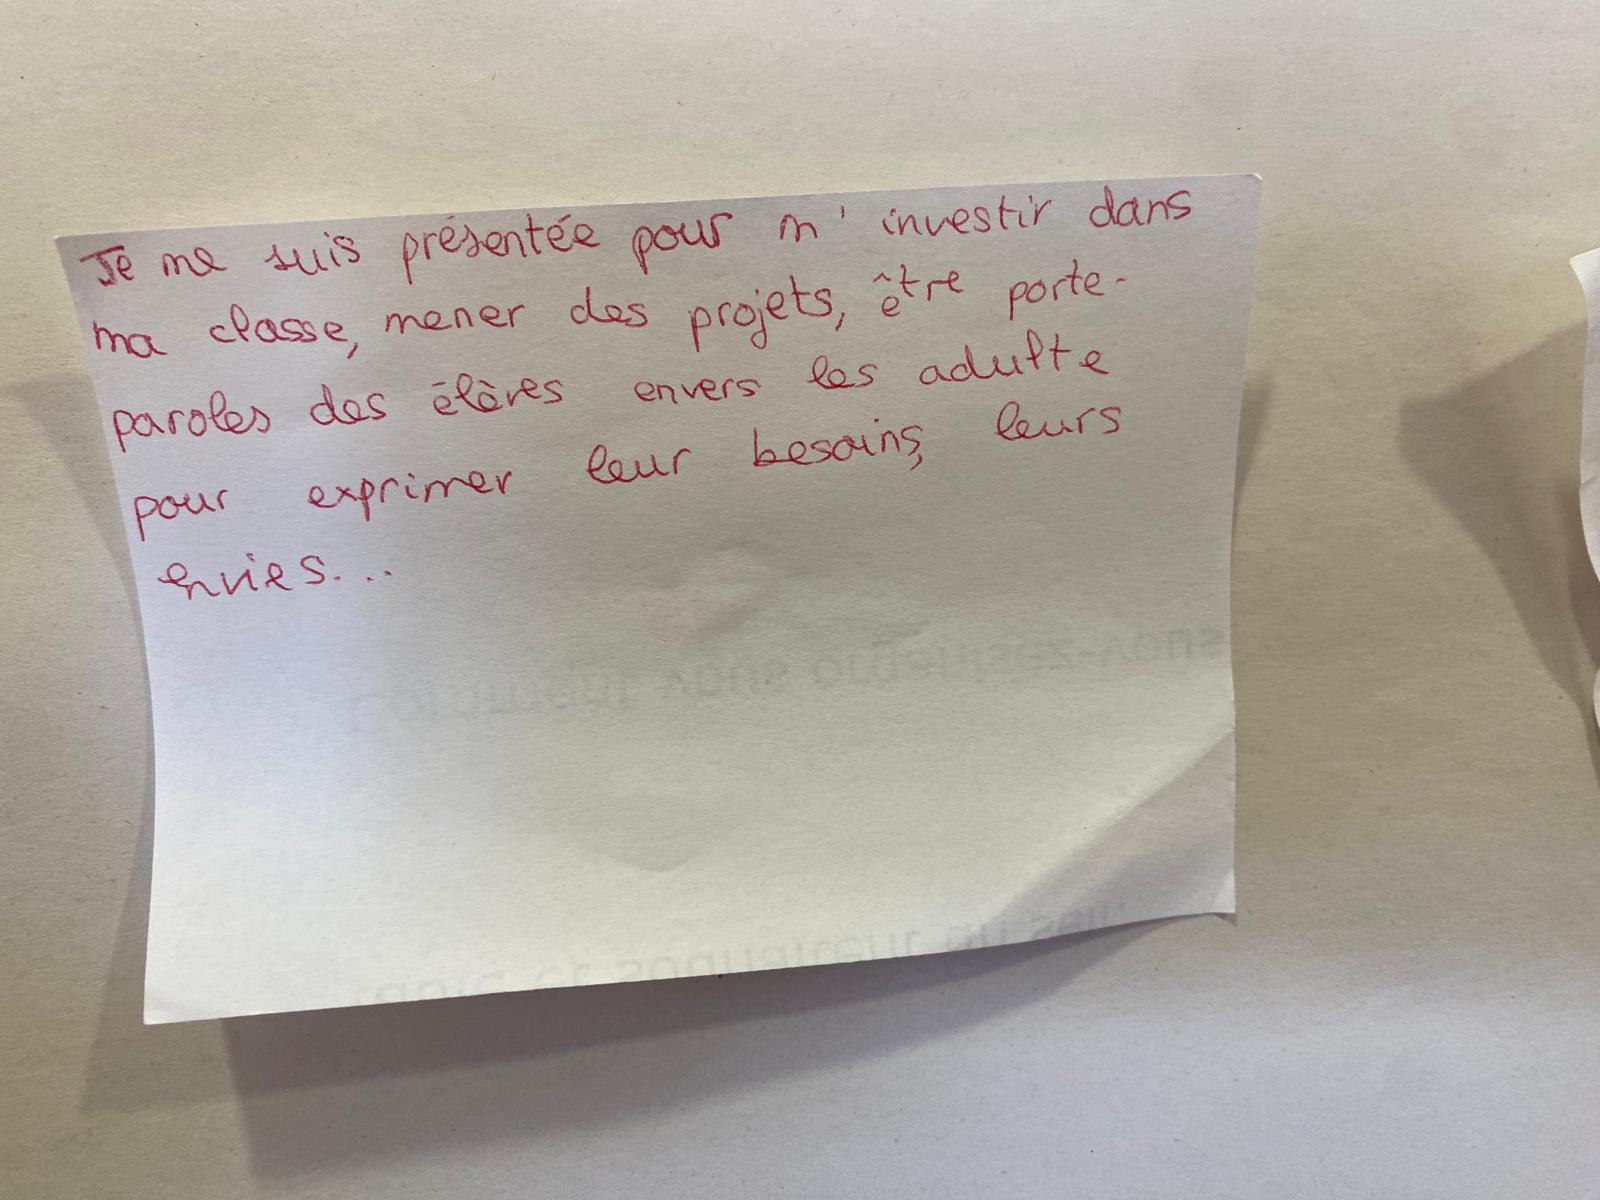 Je me suis présentée pour m'investir dans
ma classe, mener des projets, être porte-
paroles des élèves envers les adulte
pour exprimer leur besoins, leurs
envies...